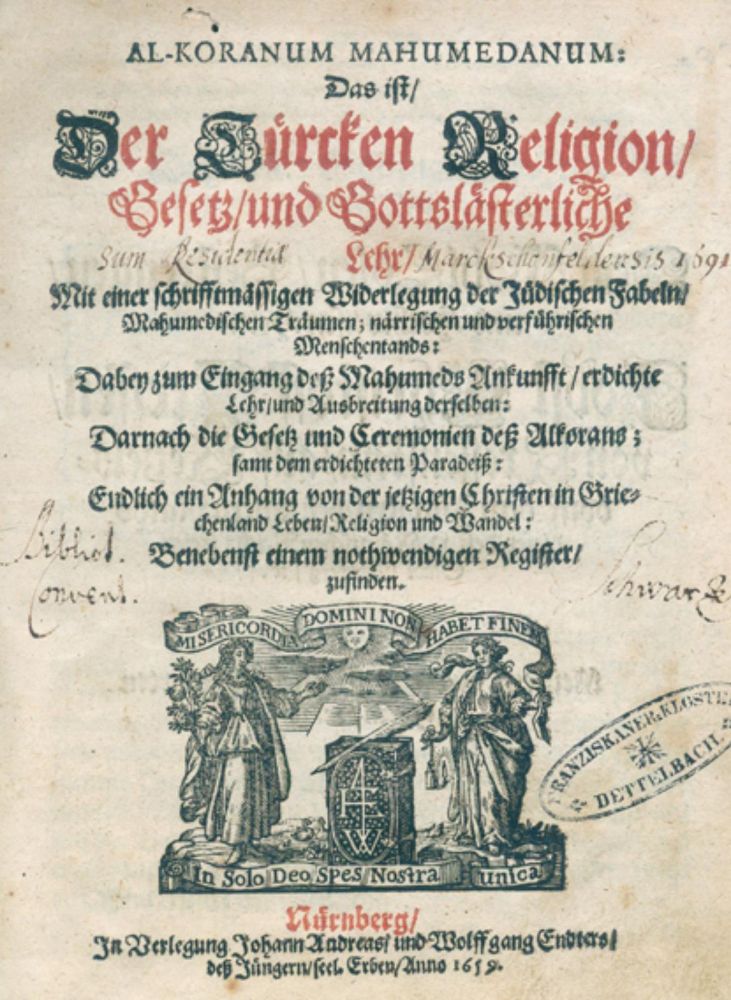 AL-KORANUM MAHUMEDANUM:
Das ist/
Der Türcken Religion/
Gesetz/und Gottslästerliche
Sum Residentiæ Lehr/ Marckschönfeldensis 1691
Mit einer schrifftmässigen Widerlegung der Jüdischen Fabeln/
Mahumedischen Träumen; närrischen und verführischen
Menschentands:
Dabey zum Eingang deß Mahumeds Ankunfft/erdichte
Lehr/und Ausbreitung derselben:
Darnach die Gesetz und Ceremonien deß Alkorans;
samt dem erdichteten Paradeiß:
Endlich ein Anhang von der jetzigen Christen in Grie-
chenland Leben/Religion und Wandel:
Bibliot.
Convent.
Benebenst einem nothwendigen Register/
zufinden.
MISERICORDIA DOMINI NON HABET FINEM
FRANZISKANER-KLOSTER
DETTELBACH
In Solo Deo Spes Nostra unica
Nürnberg/
In Verlegung Johann Andreas/und Wolffgang Endters/
deß Jüngern/seel. Erben/Anno 1659.